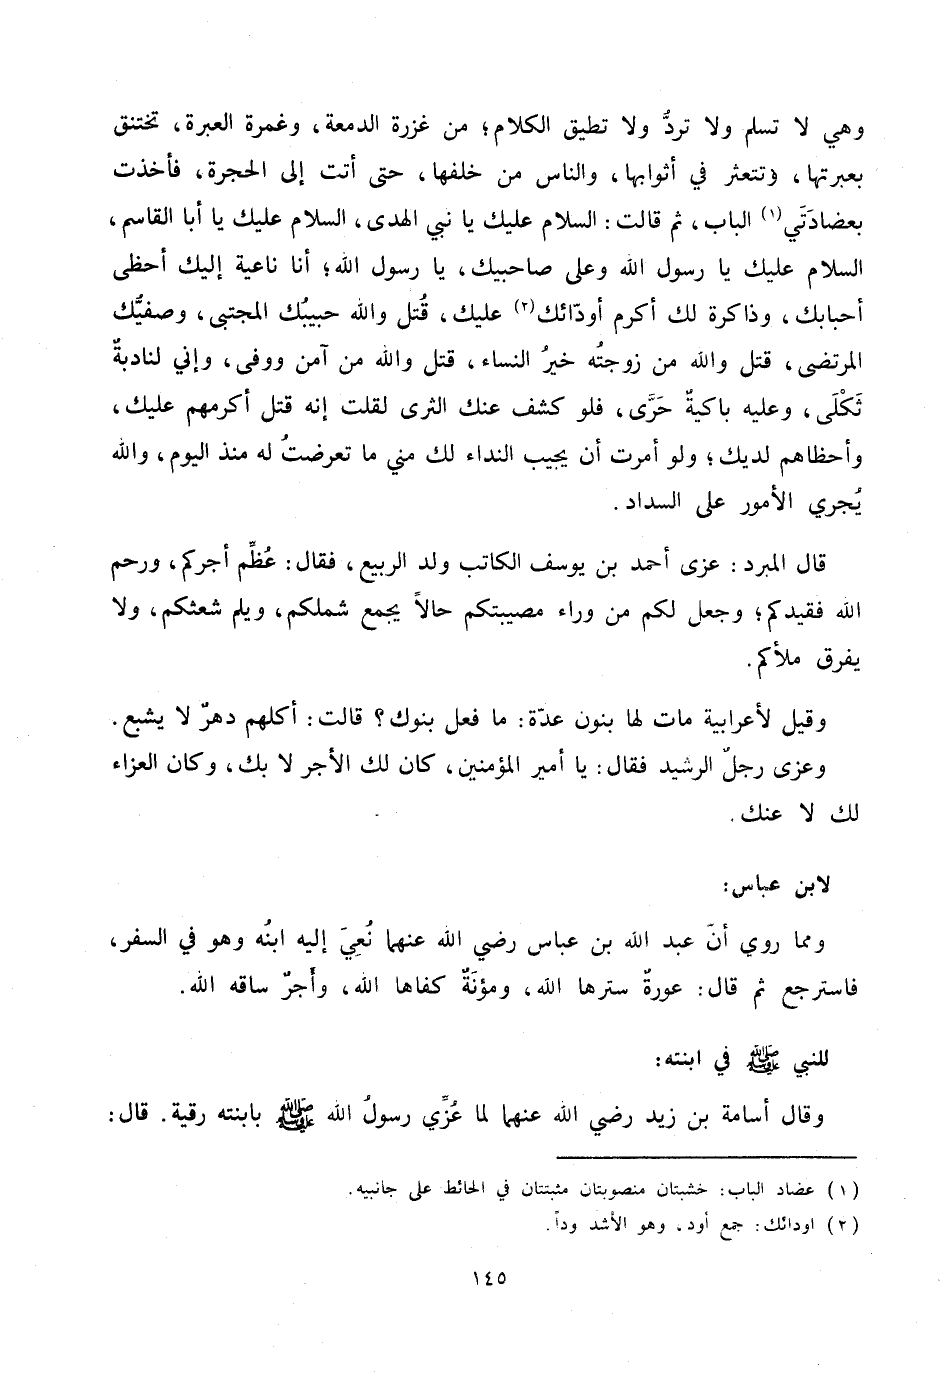 وهي لا تسلم ولا تردُّ ولا تطيق الكلام؛ من غزرة الدمعة، وغمرة العبرة، تختنق
بعبرتها، وتتعثر في أثوابها، والناس من خلفها، حتى أتت إلى الحجرة، فأخذت
بعضادَتَي(١) الباب، ثم قالت: السلام عليك يا نبي الهدى، السلام عليك يا أبا القاسم،
السلام عليك يا رسول الله وعلى صاحبيك، يا رسول الله؛ أنا ناعية إليك أحظى
أحبابك، وذاكرة لك أكرم أودّائك(٢) عليك، قُتل والله حبيبُك المجتبى، وصفيُّك
المرتضى، قتل والله من زوجتُه خيرُ النساء، قتل والله من آمن ووفى، وإني لنادبةٌ
ثَكْلَى، وعليه باكيةٌ حَرَّى، فلو كشف عنك الثرى لقلت إنه قتل أكرمهم عليك،
وأحظاهم لديك؛ ولو أمرت أن يجيب النداء لك مني ما تعرضتُ له منذ اليوم، والله
يُجري الأمور على السداد.
قال المبرد: عزى أحمد بن يوسف الكاتب ولد الربيع، فقال: عُظِّم أجركم، ورحم
الله فقيدكم؛ وجعل لكم من وراء مصيبتكم حالاً يجمع شملكم، ويلم شعثكم، ولا
يفرق ملأكم.
وقيل لأعرابية مات لها بنون عدّة: ما فعل بنوك؟ قالت: أكلهم دهرٌ لا يشبع.
وعزى رجلٌ الرشيد فقال: يا أمير المؤمنين، كان لك الأجر لا بك، وكان العزاء
لك لا عنك.
لابن عباس:
ومما روي أنَّ عبد الله بن عباس رضي الله عنهما نُعِيَ إليه ابنُه وهو في السفر،
فاسترجع ثم قال: عورةٌ سترها الله، ومؤنَةٌ كفاها الله، وأَجرٌ ساقه الله.
للنبي ﷺ في ابنته:
وقال أسامة بن زيد رضي الله عنهما لما عُزِّي رسولُ الله ﷺ بابنته رقية. قال:
(١) عضاد الباب: خشبتان منصوبتان مثبتتان في الحائط على جانبيه.
(٢) اودائك: جمع أود. وهو الأشد وداً.
١٤٥